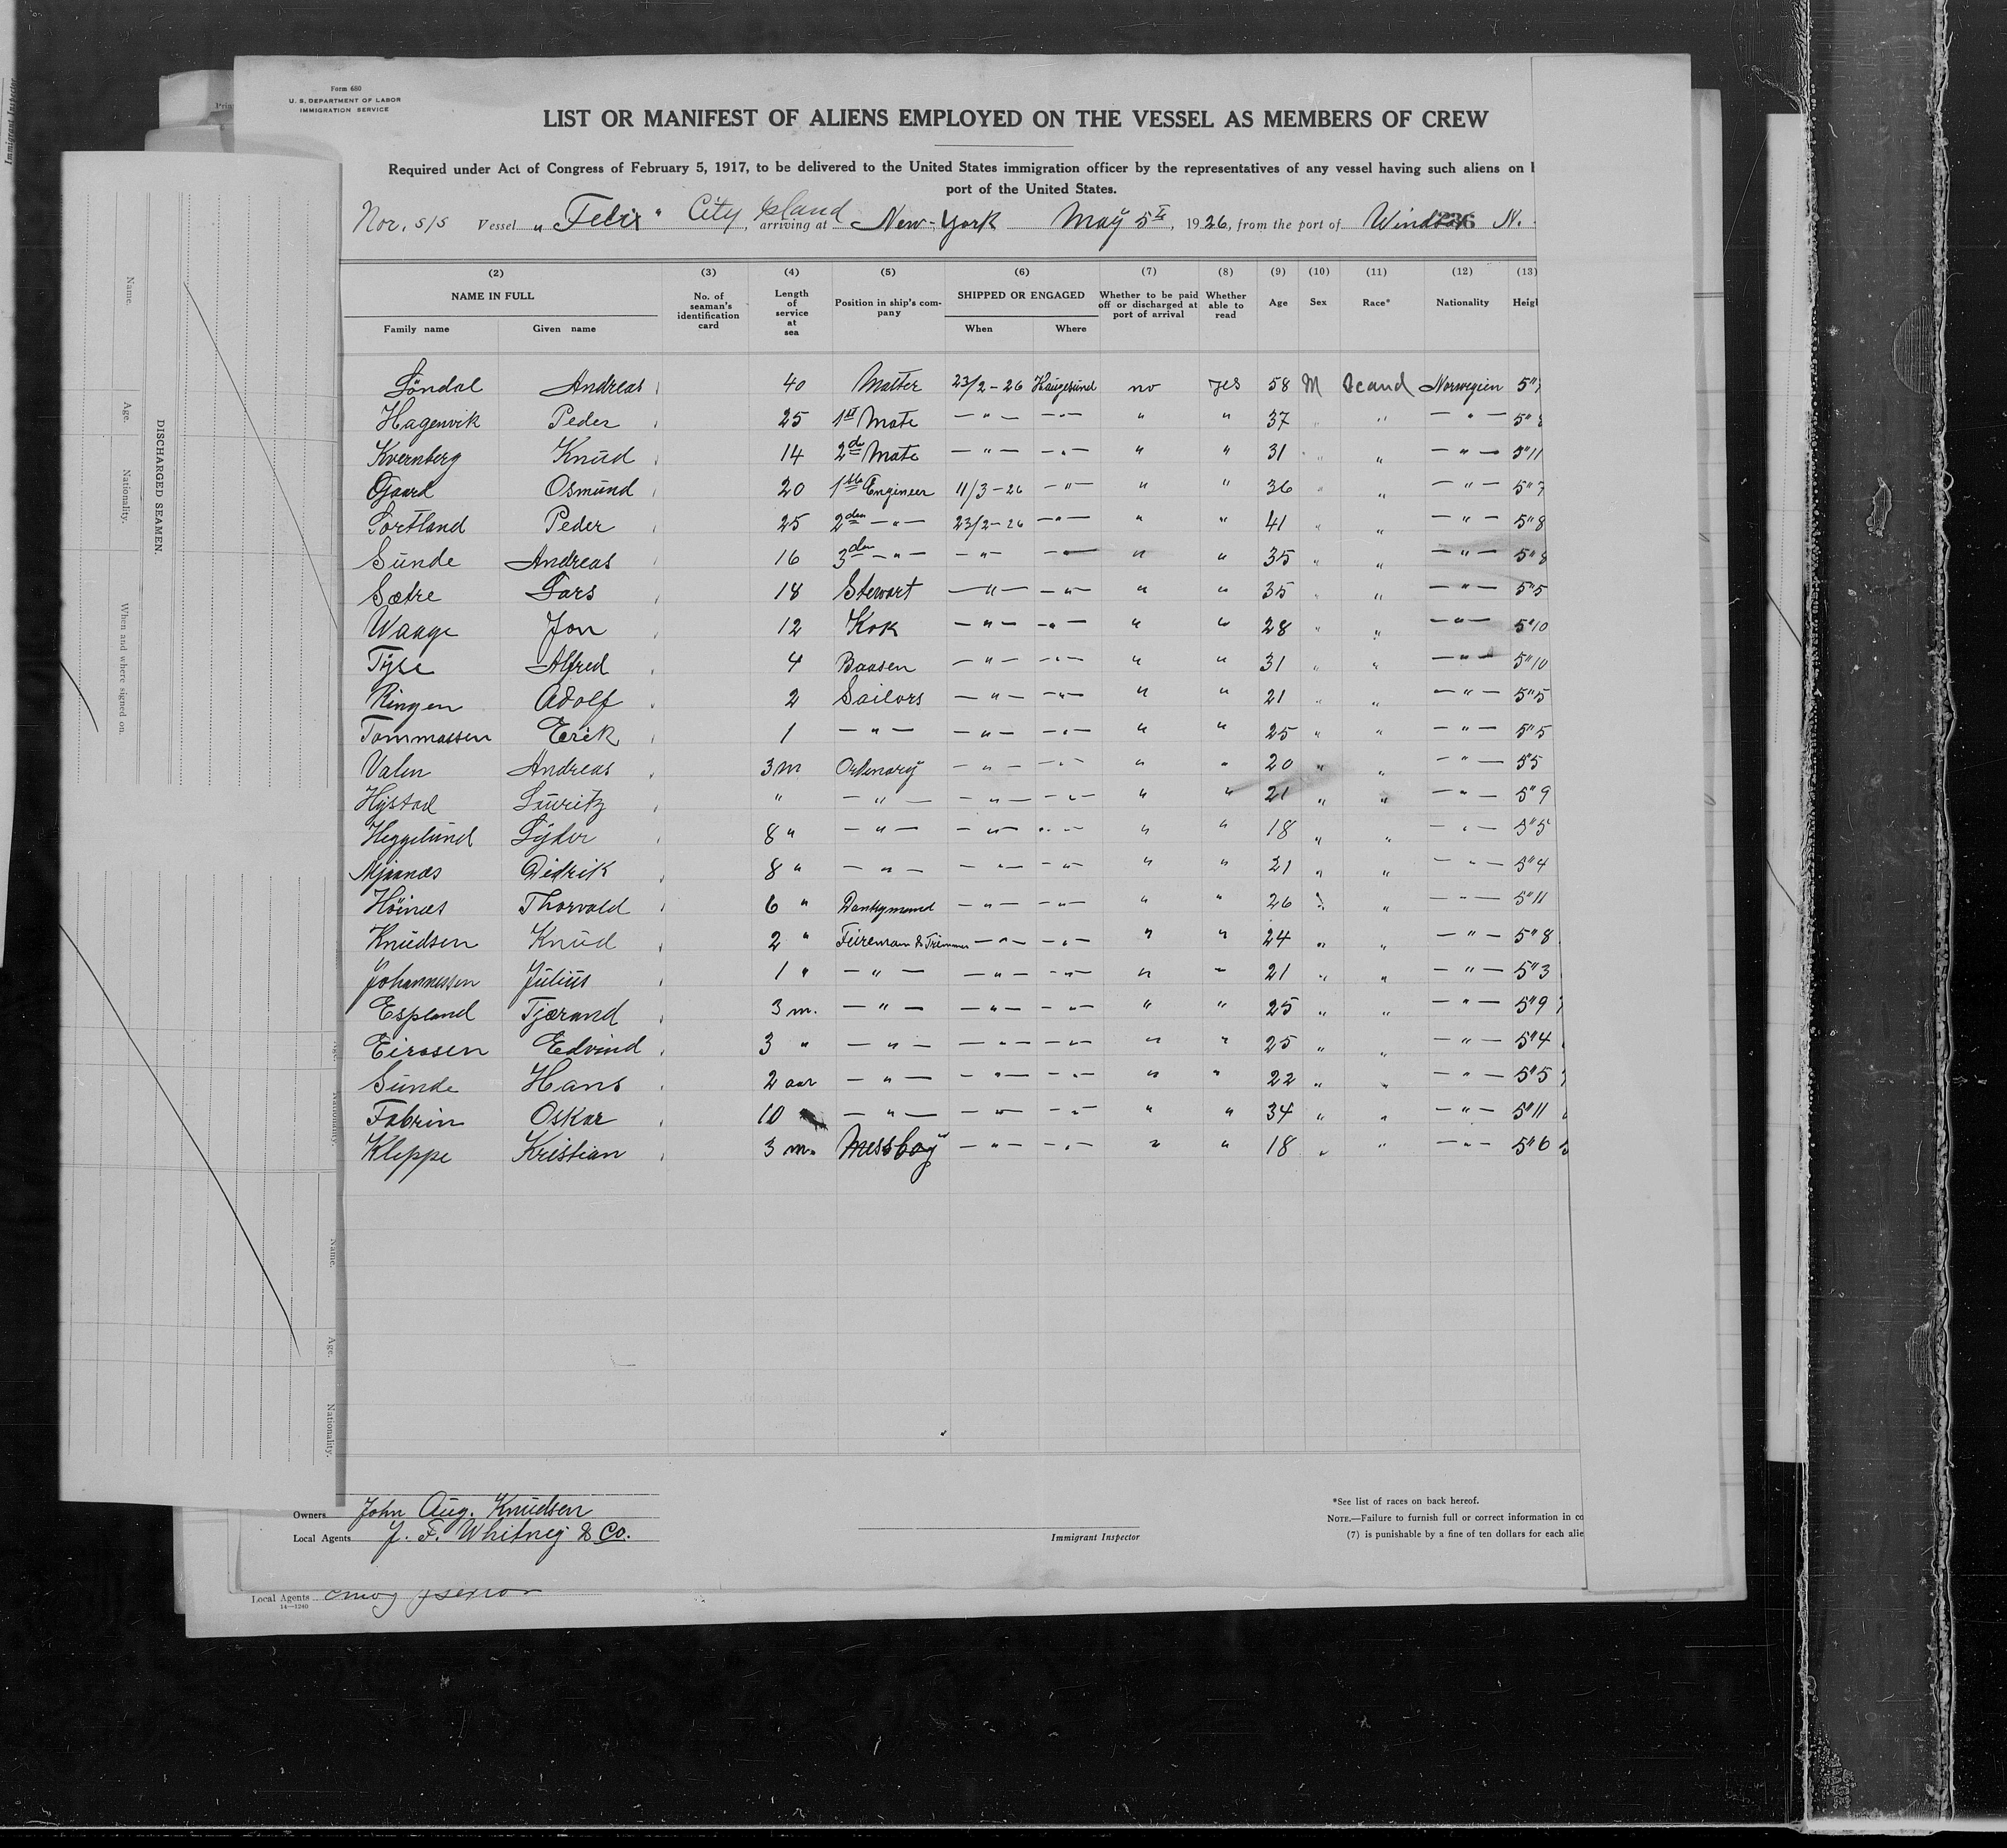 Form 680
U. S. DEPARTMENT OF LABOR
IMMIGRATION SERVICE
LIST OR MANIFEST OF ALIENS EMPLOYED ON THE VESSEL AS MEMBERS OF CREW
Required under Act of Congress of February 5, 1917, to be delivered to the United States immigration officer by the representatives of any vessel having such aliens on
port of the United States.
Nor. s/s Vessel "Felix" City Island, arriving at New-York May 5th, 1926, from the port of Windsor N.
236
(2) (3) (4) (5) (6) (7) (8) (9) (10) (11) (12) (13)
NAME IN FULL No. of seaman's identification card Length of service at sea Position in ship's company SHIPPED OR ENGAGED Whether to be paid off or discharged at port of arrival Whether able to read Age Sex Race* Nationality Heigh
Family name Given name When Where
Andreas 40 23/2-26 Haugesund no yes 58 M Scand Norwegien 5"
Hagenvik Peder 25 1st Mate -"- -"- " " 37 " " -"- 5"
Kvernberg Knud 14 2d Mate -"- -"- " " 31 " " -"- 5"11
Osmund 20 1ste Engineer 11/3-26 -"- " " 36 " " -"- 5"7
Sortland Peder 25 2den -"- 23/2-26 -"- " " 41 " " -"- 5"8
Sunde Andreas 16 3den -"- -"- -"- " " 35 " " -"- 5"8
Sætre Lars 18 Stewart -"- -"- " " 35 " " -"- 5"5
Waage Jon 12 Kok -"- -"- " " 28 " " -"- 5"10
Tyse Alfred 4 Baasen -"- -"- " " 31 " " -"- 5"10
Ringen Adolf 2 Sailors -"- -"- " " 21 " " -"- 5"5
Tommassen Erik 1 -"- -"- -"- " " 25 " " -"- 5"5
Valen Andreas 3 m Ordenary -"- -"- " " 20 " " -"- 5"5
Hystad Lauritz " -"- -"- -"- " " 21 " " -"- 5"9
Heggelund Lyder 8 " -"- -"- -"- " " 18 " " -"- 5"5
Mjaanes Didrik 8 " -"- -"- -"- " " 21 " " -"- 5"4
Höines Thorvald 6 " Dankymand -"- -"- " " 26 " " -"- 5"11
Knudsen Knud 2 " Feireman & Trimmer -"- -"- " " 24 " " -"- 5"8
Johannessen Julius 1 " -"- -"- -"- " " 21 " " -"- 5"3
Espland Tjærand 3 m. -"- -"- -"- " " 25 " " -"- 5"9
Edvind 3 " -"- -"- -"- " " 25 " " -"- 5"4
Sunde Hans 2 aar -"- -"- -"- " " 22 " " -"- 5"5
Fabrin Oskar 10 -"- -"- -"- " " 34 " " -"- 5"11
Kleppe Kristian 3 m. Messboy -"- -"- " " 18 " " -"- 5"6
Owners John Aug. Knudsen
Local Agents J. F. Whitney & Co.
Immigrant Inspector
*See list of races on back hereof.
NOTE.—Failure to furnish full or correct information in co
(7) is punishable by a fine of ten dollars for each alie
Local Agents
14—1240
DISCHARGED SEAMEN.
Name. Age. Nationality. When and where signed on.
Name. Age. Nationality.
Immigrant Inspector